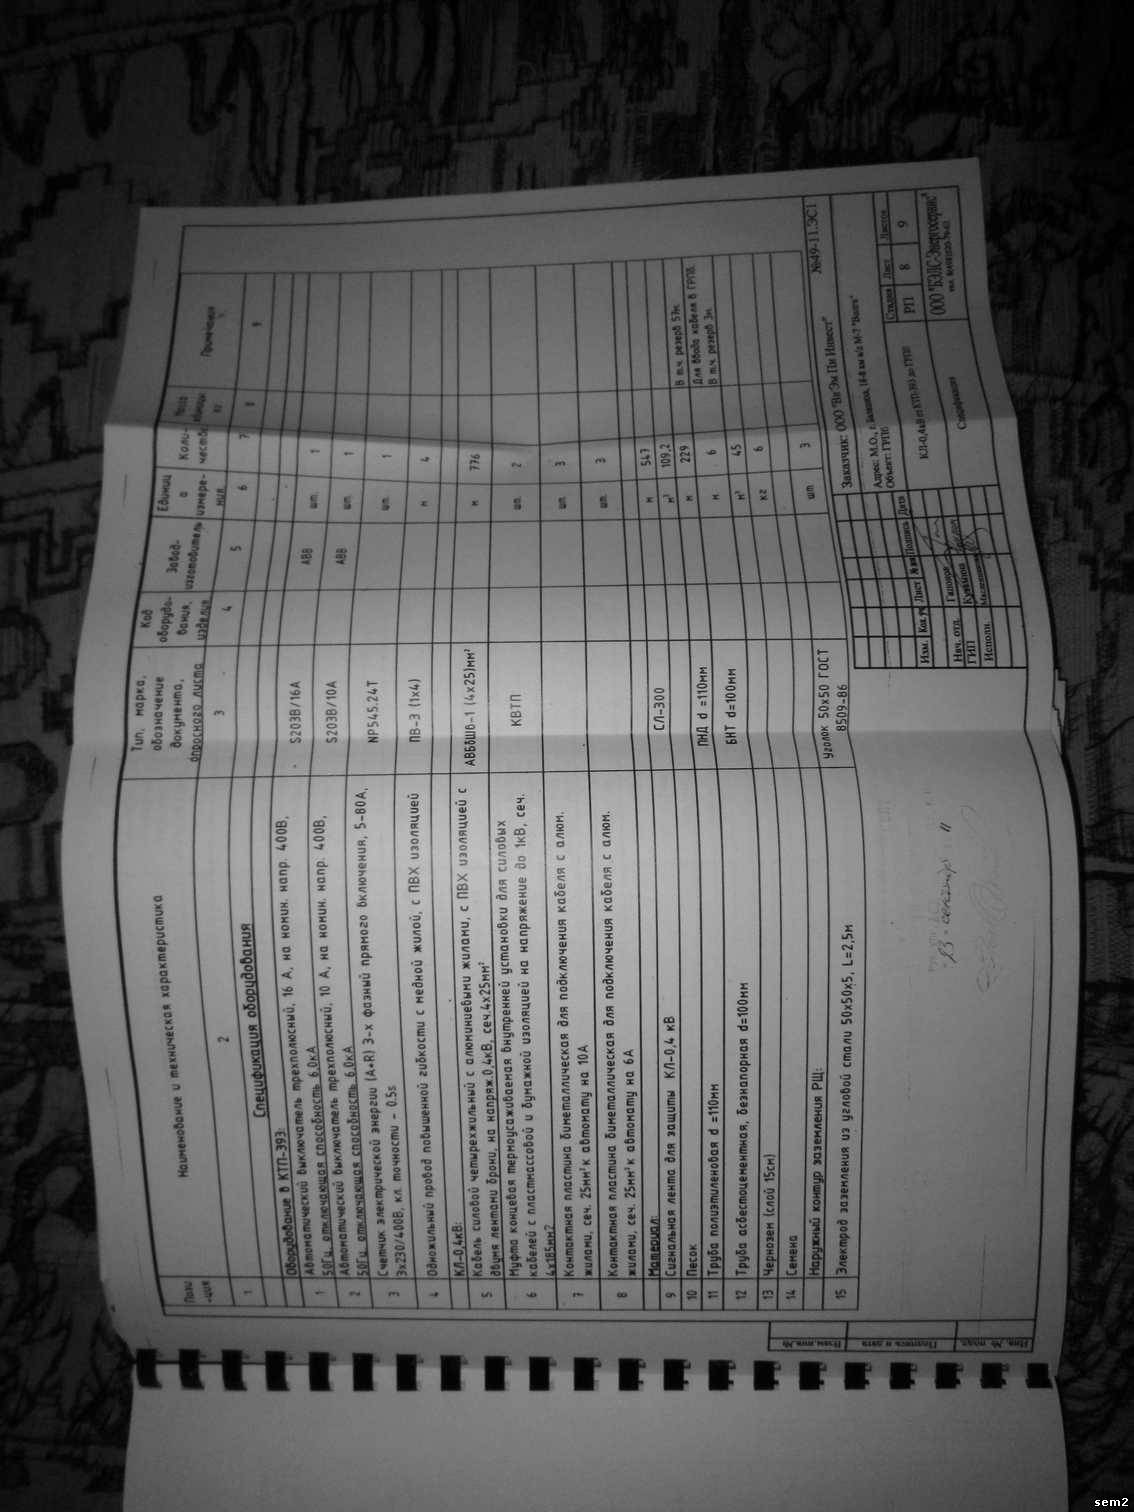 Пози-ция
Наименование и техническая характеристика
Тип, марка, обозначение документа, опросного листа
Код оборудо-вания, изделия
Завод-изготовитель
Единица измере-ния
Коли-чество
Примечания
1 2 3 4 5 6 7 8 9
Спецификация оборудования
Оборудование в КТП-393:
1 Автоматический выключатель трехполюсный, 16 А, на номин. напр. 400В, S203B/16A ABB шт. 1
50Гц, отключающая способность 6,0кА
2 Автоматический выключатель трехполюсный, 10 А, на номин. напр. 400В, S203B/10A ABB шт. 1
50Гц, отключающая способность 6,0кА
3 Счетчик электрической энергии (A+R) 3-х фазный прямого включения, 5-80А, NP545.24T шт. 1
3х230/400В, кл. точности - 0.5s
4 Одножильный провод повышенной гибкости с медной жилой, с ПВХ изоляцией ПВ-3 (1х4) м 4
КЛ-0,4кВ:
5 Кабель силовой четырехжильный с алюминиевыми жилами, с ПВХ изоляцией с АВБбШв-1 (4х25)мм² м 776
двумя лентами брони, на напряж.0,4кВ, сеч.4х25мм²
6 Муфта концевая термоусаживаемая внутренней установки для силовых КВТП шт. 2
кабелей с пластмассовой и бумажной изоляцией на напряжение до 1кВ, сеч.
4х185мм2
7 Контактная пластина биметаллическая для подключения кабеля с алюм. шт. 3
жилами, сеч. 25мм²к автомату на 10А
8 Контактная пластина биметаллическая для подключения кабеля с алюм. шт. 3
жилами, сеч. 25мм²к автомату на 6А
Материал:
9 Сигнальная лента для защиты КЛ-0,4 кВ СЛ-300 м 547
10 Песок м³ 109,2
11 Труба полиэтиленовая d =110мм ПНД d =110мм м 229 В т.ч. резерв 57м.
12 Труба асбестоцементная, безнапорная d=100мм БНТ d=100мм м 6 Для ввода кабеля в ГРПБ. В т.ч. резерв 3м.
13 Чернозем (слой 15см) м³ 45
14 Семена кг 6
Наружный контур заземления РЩ:
15 Электрод заземления из угловой стали 50х50х5, L=2,5м Уголок 50х50 ГОСТ 8509-86 шт 3
№49-11.ЭС1
Заказчик: ООО "Ви Эм Пи Инвест"
Объект: ГРПБ
Изм. Лист Подпись Дата
Нач. отд.
ГИП
Исполн.
КЛ-0,4кВ от КТП-393 до ГРПБ
Стадия Лист Листов
РП 8 9
Спецификация
Инв. № подл. Подпись и дата Взам.инв.№
sem2